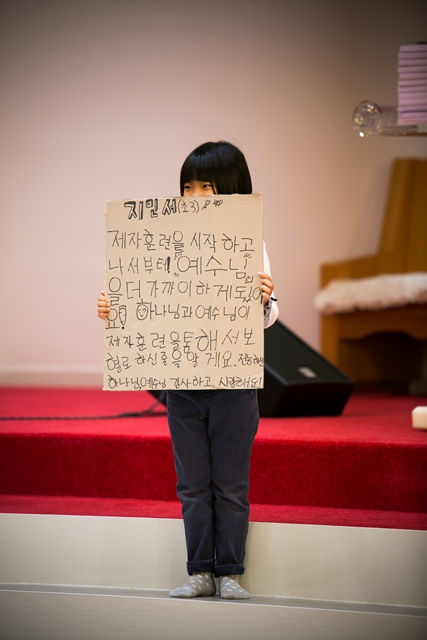 지민서(초3)
제자훈련을 시작 하고
나서부터! "예수님"
을 더 가까이 하게
요! 하나님과 예수님이
제자훈련을통해서 보
혈로 하신줄을 알 게요. 전능하신
하나님예수님 감사하고, 사랑해요!